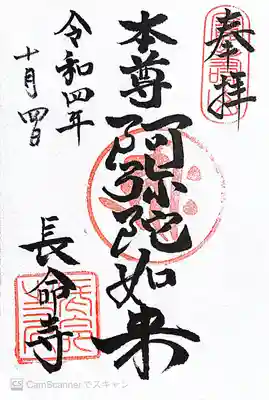 奉拝
本尊 阿弥陀如来
長命寺
令和四年
十月四日
CS CamScanner でスキャン